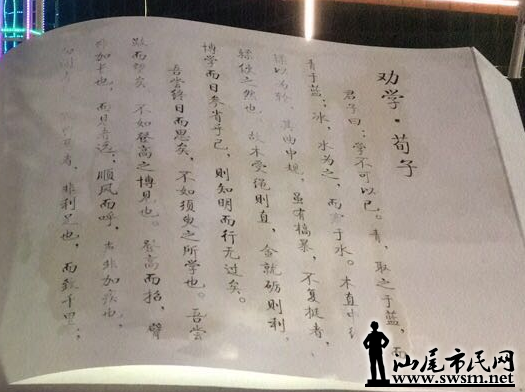 劝学·荀子
君子曰：学不可以已。青，取之于蓝，而
青于蓝；冰，水为之，而寒于水。木直中
以为轮，其曲中规，虽有槁暴，不复挺者，
使之然也。故木受绳则直，金就砺则利，
博学而日参省乎己，则知明而行无过矣。
吾尝终日而思矣，不如须臾之所学也。吾尝
跂而望矣，不如登高之博见也。登高而招，臂
非加长也，而见者远；顺风而呼，声非加疾也，
者，非利足也，而致千里；
山尾市民网
www.swsm.net